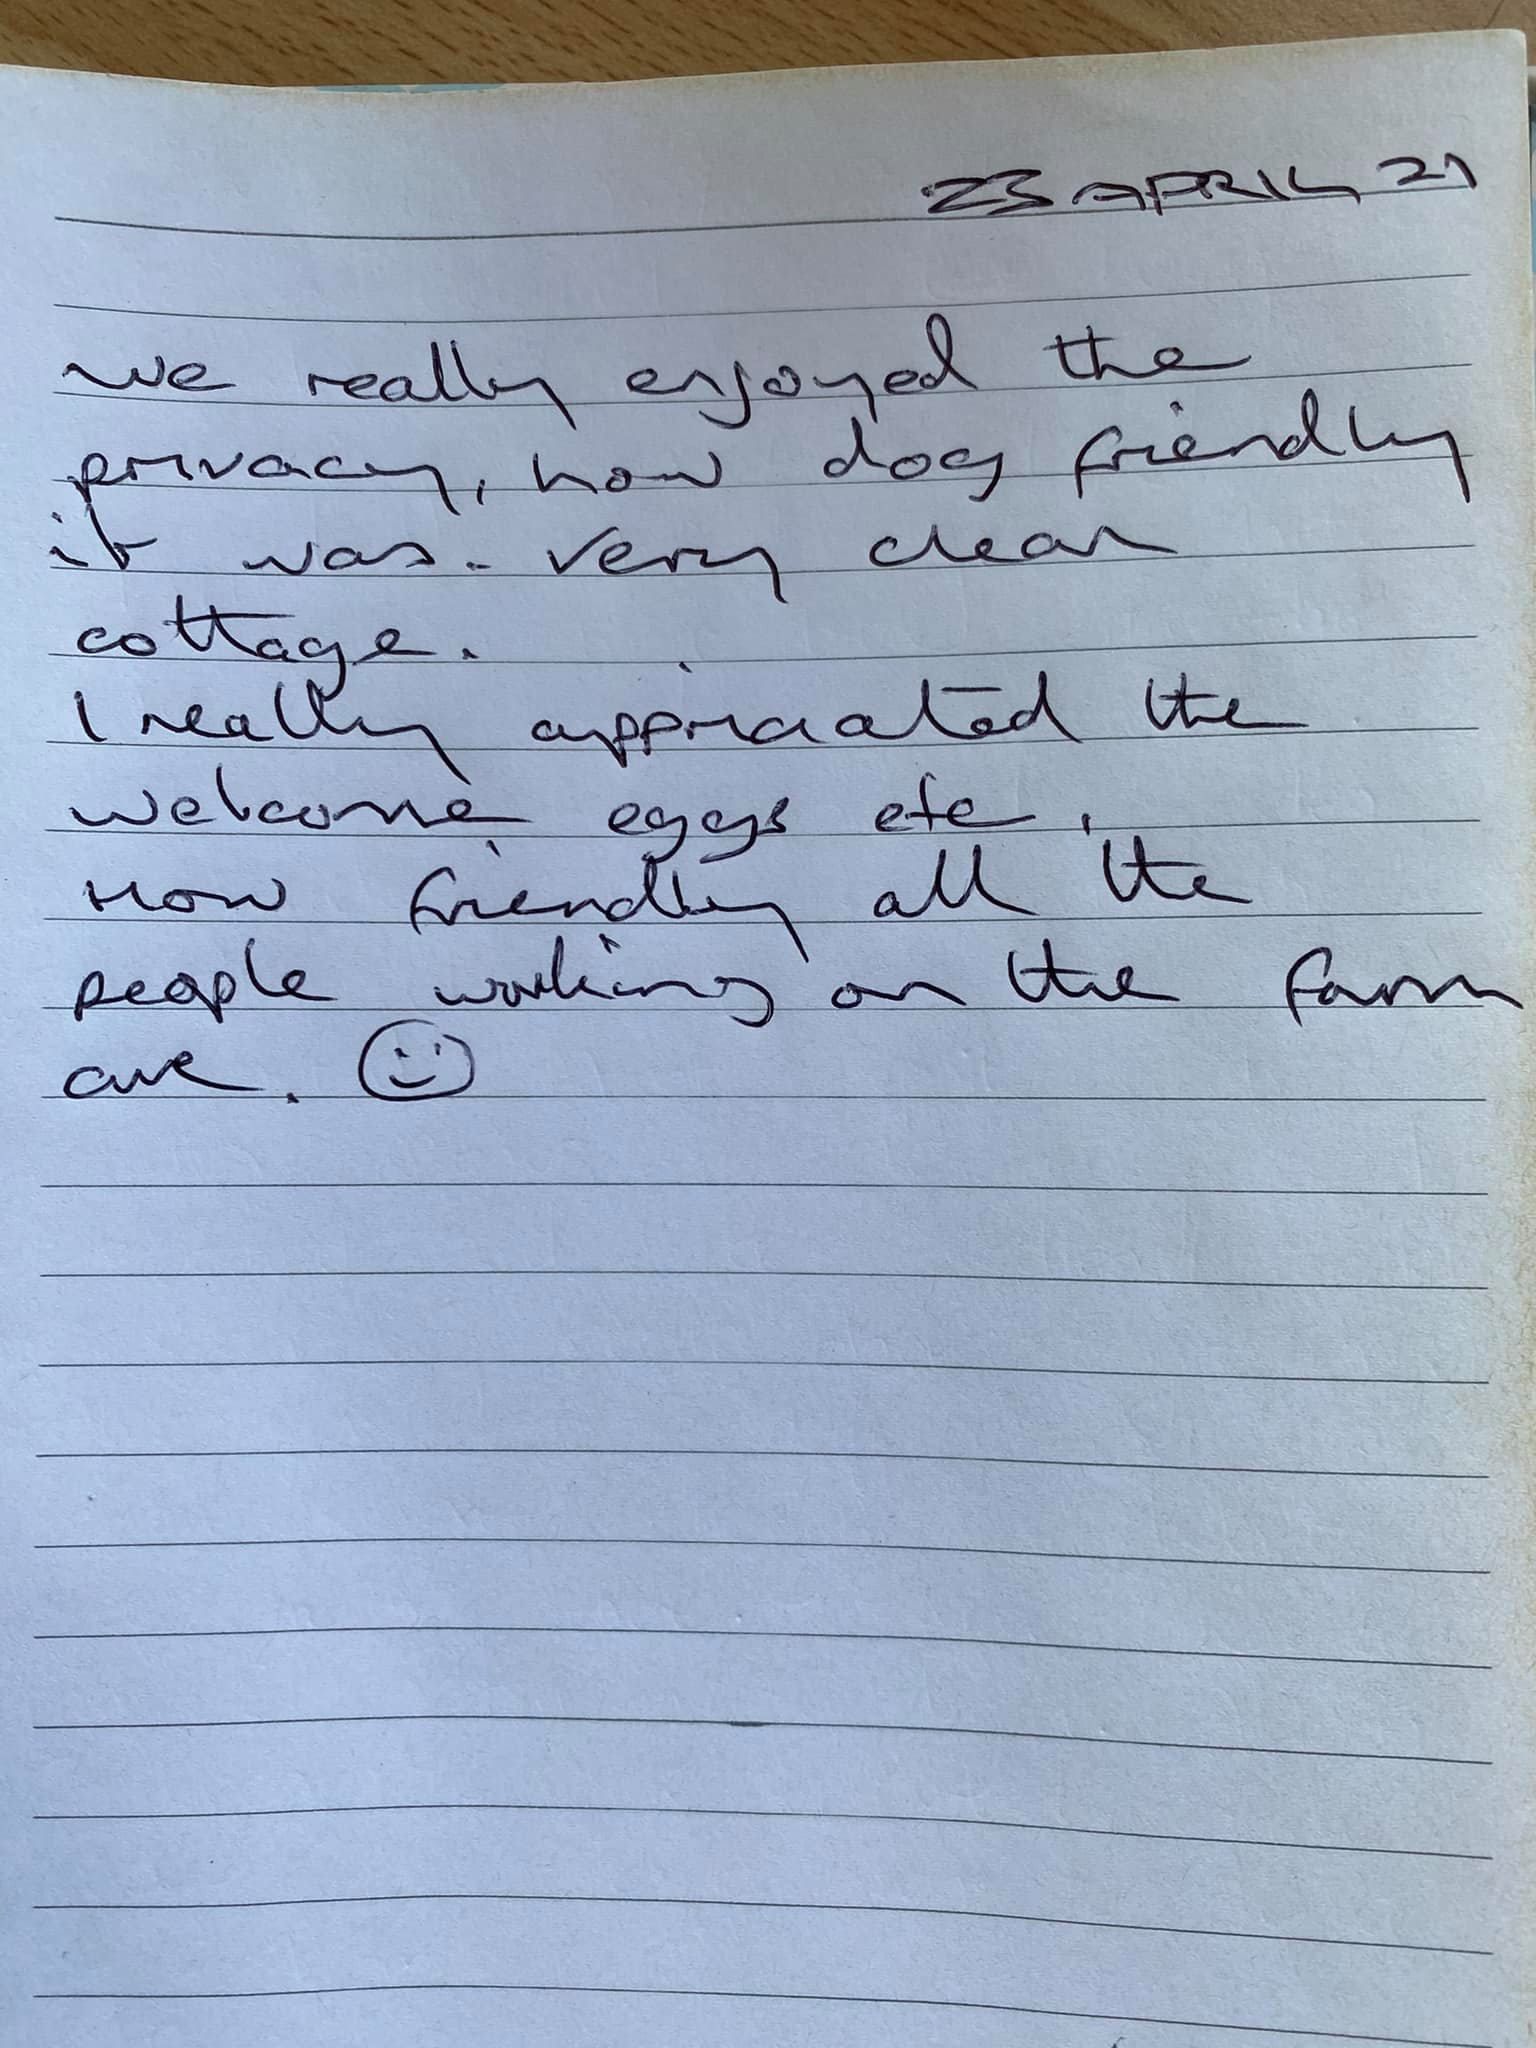 23 APRIL 21
we really enjoyed the
privacy, how dog friendly
it was. very clean
cottage.
I really appriciated the
welcome eggs etc,
How friendly all the
people working on the farm
are. ☺